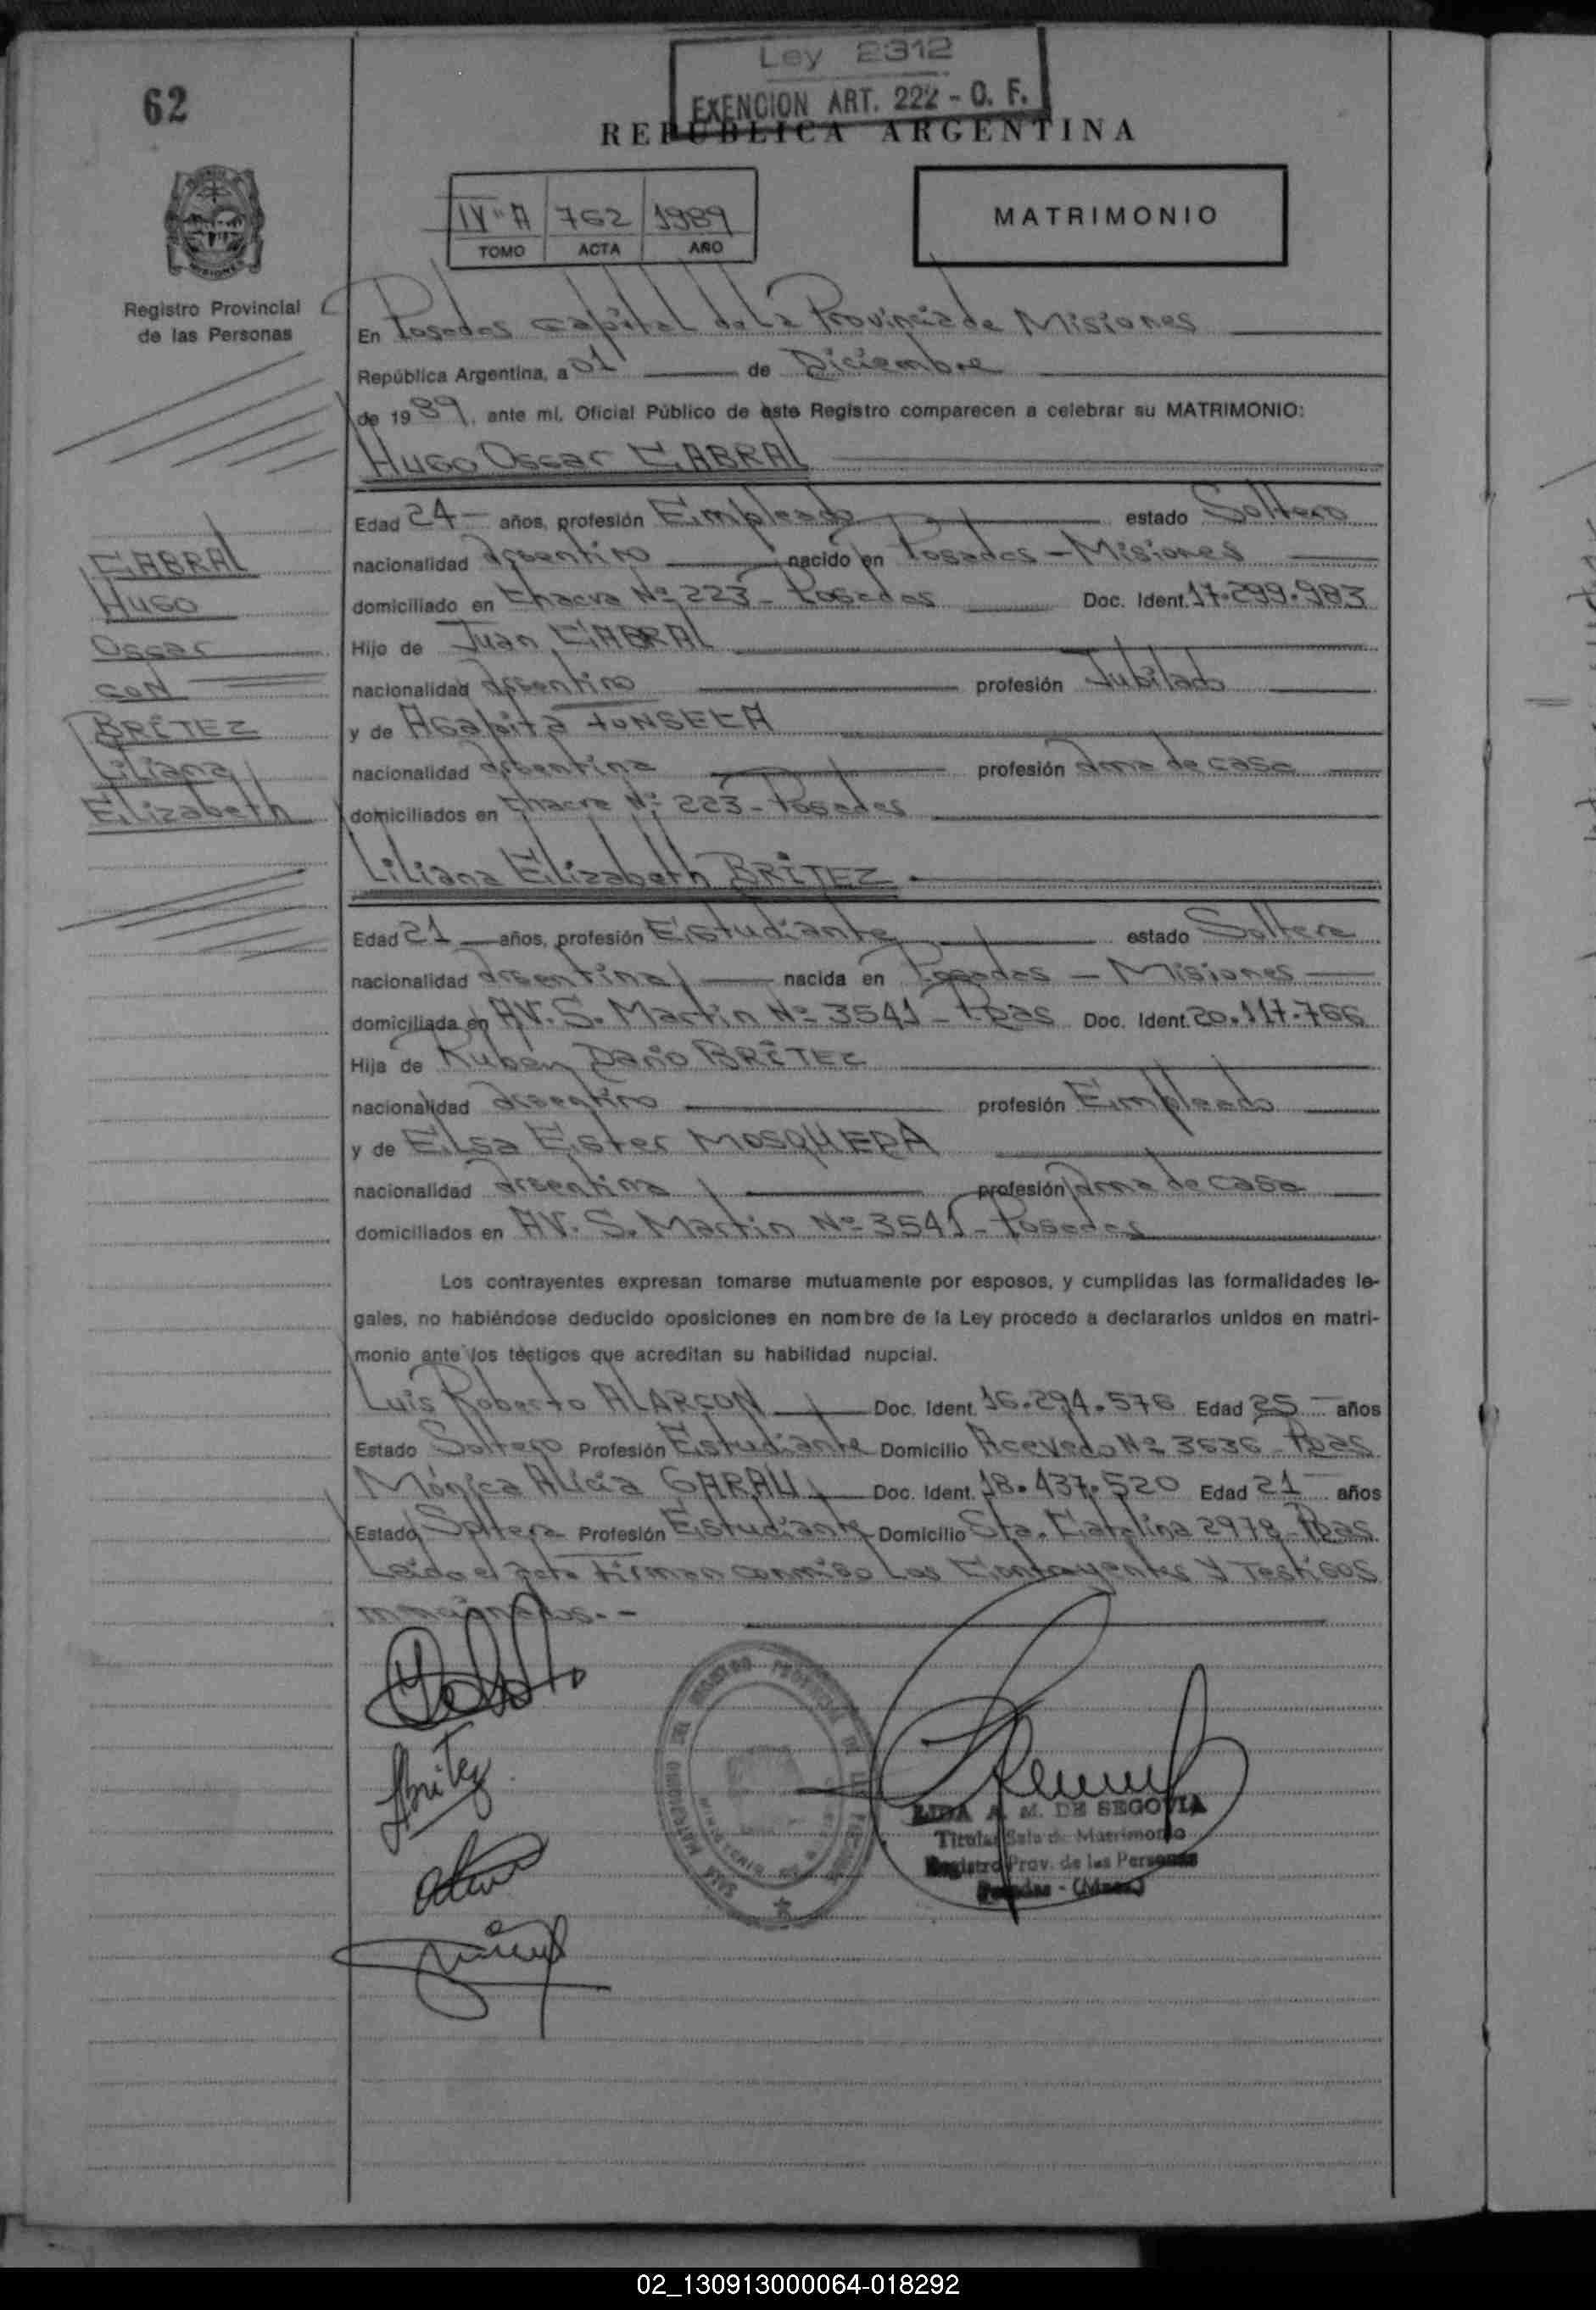 62
Ley 2312
EXENCION ART. 222 - O. F.
REPUBLICA ARGENTINA
MISIONES
Registro Provincial
de las Personas
IVº A 762 1989
TOMO ACTA AÑO
MATRIMONIO
En Posadas capital de la Provincia de Misiones
República Argentina, a 01 de Diciembre
de 1989, ante mí, Oficial Público de este Registro comparecen a celebrar su MATRIMONIO:
Hugo Oscar CABRAL
Edad 24 años, profesión Empleado estado Soltero
nacionalidad argentino nacido en Posadas - Misiones
domiciliado en Chacra Nº 223 - Posadas Doc. Ident. 17.299.983
Hijo de Juan CABRAL
nacionalidad argentino profesión Jubilado
y de Agapita FONSECA
nacionalidad argentina profesión ama de casa
domiciliados en Chacra Nº 223 - Posadas
CABRAL
Hugo
Oscar
CON
BRITEZ
Liliana
Elizabeth
Liliana Elizabeth BRITEZ
Edad 21 años, profesión Estudiante estado Soltera
nacionalidad argentina nacida en Posadas - Misiones
domiciliada en AV. S. Martin Nº 3541 - Pdas Doc. Ident. 20.117.766
Hija de Ruben Dario BRITEZ
nacionalidad argentino profesión Empleado
y de Elsa Ester MOSQUEDA
nacionalidad argentina profesión ama de casa
domiciliados en AV. S. Martin Nº 3541 - Posadas
Los contrayentes expresan tomarse mutuamente por esposos, y cumplidas las formalidades le-
gales, no habiéndose deducido oposiciones en nombre de la Ley procedo a declararlos unidos en matri-
monio ante los testigos que acreditan su habilidad nupcial.
Luis Roberto ALARCON Doc. Ident. 16.294.576 Edad 25 años
Estado Soltero Profesión Estudiante Domicilio Acevedo Nº 3636 - Pdas
Mónica Alicia GARAU Doc. Ident. 18.437.520 Edad 21 años
Estado Soltera Profesión Estudiante Domicilio Sta. Catalina 2978 - Pdas
Leida el acta Firman conmigo Los Contrayentes y Testigos
mencionados. -
LIDA A. M. DE SEGOVIA
Titular Sala de Matrimonio
Registro Prov. de las Personas
Posadas - (Mnes.)
02_130913000064-018292